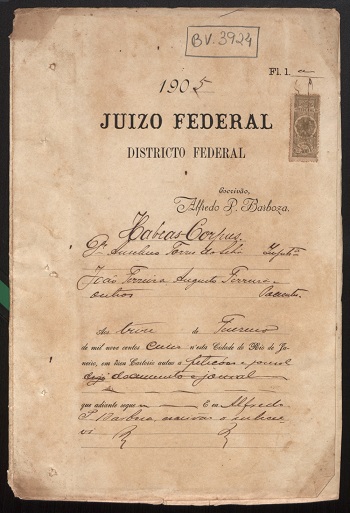 BV. 3924
Fl. 1.
1905
JUIZO FEDERAL
DISTRICTO FEDERAL
Escrivão,
Alfredo P. Barboza.
Habeas-Corpus.
João Ferreira Augusto Ferreira e
outros Pacientes
Aos treze de Fevereiro
de mil nove centos cinco n'esta Cidade do Rio de Ja-
neiro, em meu Cartorio autuo a petição e jornal
documento e jornal
que adiante segue E eu Alfredo
P. Barboza, escrivão o subscre
vi